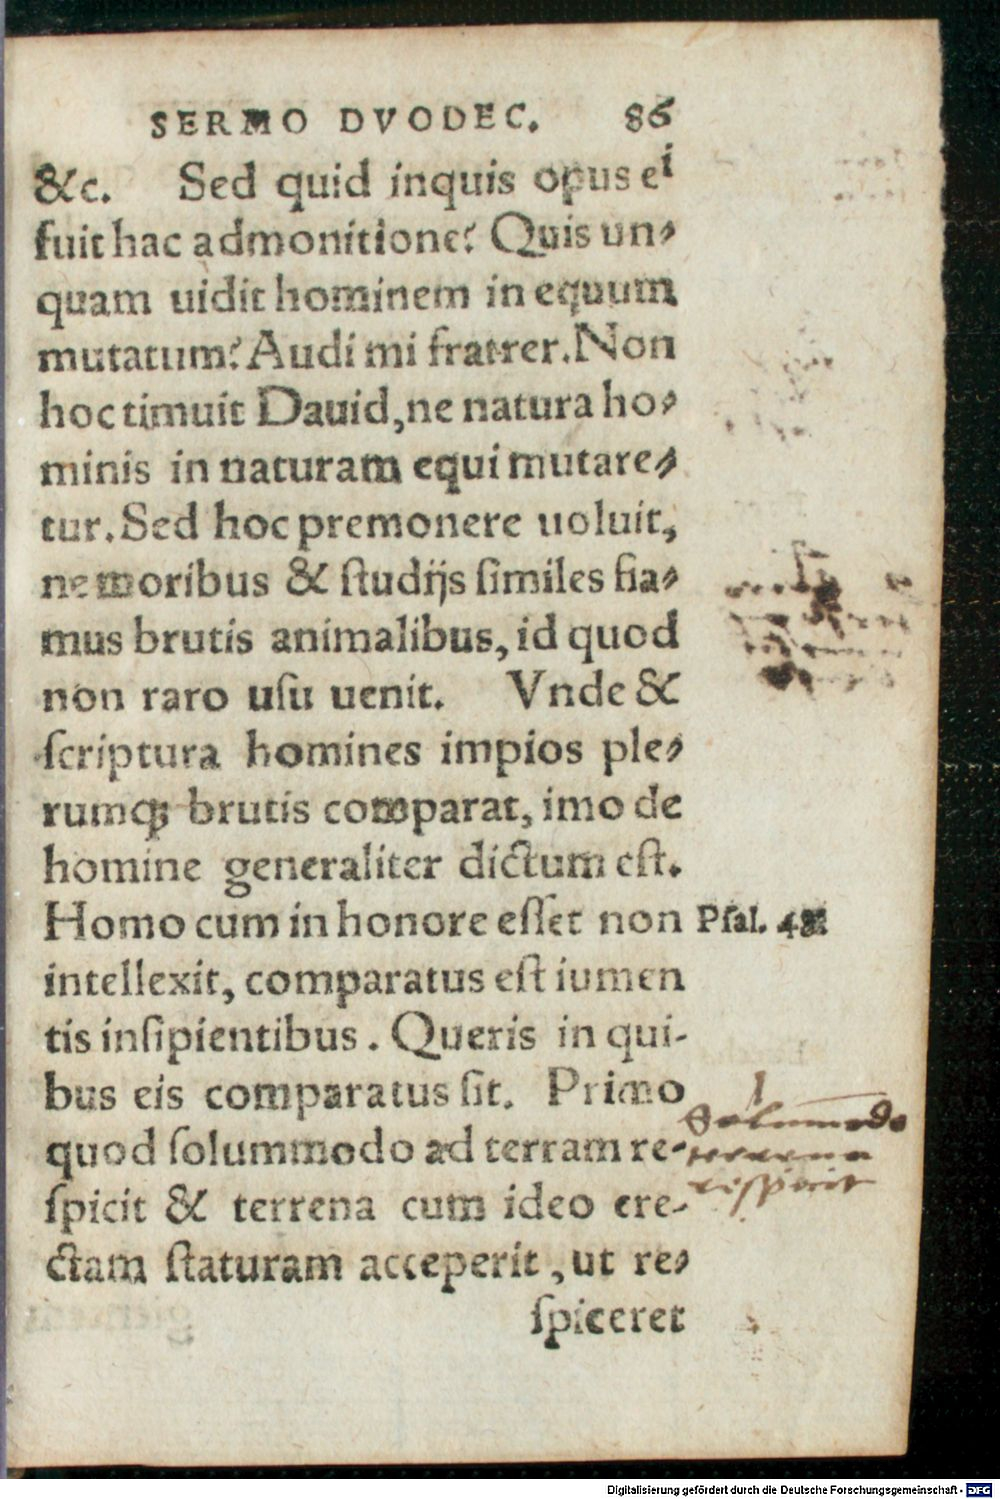 SERMO DVODEC. 86
&c. Sed quid inquis opus ei
fuit hac admonitione? Quis un-
quam uidit hominem in equum
mutatum? Audi mi fratrer. Non
hoc timuit Dauid, ne natura ho-
minis in naturam equi mutare-
tur. Sed hoc premonere uoluit,
ne moribus & ſtudijs ſimiles fia-
mus brutis animalibus, id quod
non raro uſu uenit. Vnde &
ſcriptura homines impios ple-
rumqꝫ brutis comparat, imo de
homine generaliter dictum eſt.
Homo cum in honore eſſet non Pſal. 48.
intellexit, comparatus eſt iumen
tis inſipientibus. Queris in qui-
bus eis comparatus ſit. Primo
quod ſolummodo ad terram re-
ſpicit & terrena cum ideo ere-
ctam ſtaturam acceperit, ut re-
ſpiceret
1
Solummodo
terrena
respicit
Digitalisierung gefördert durch die Deutsche Forschungsgemeinschaft - DFG